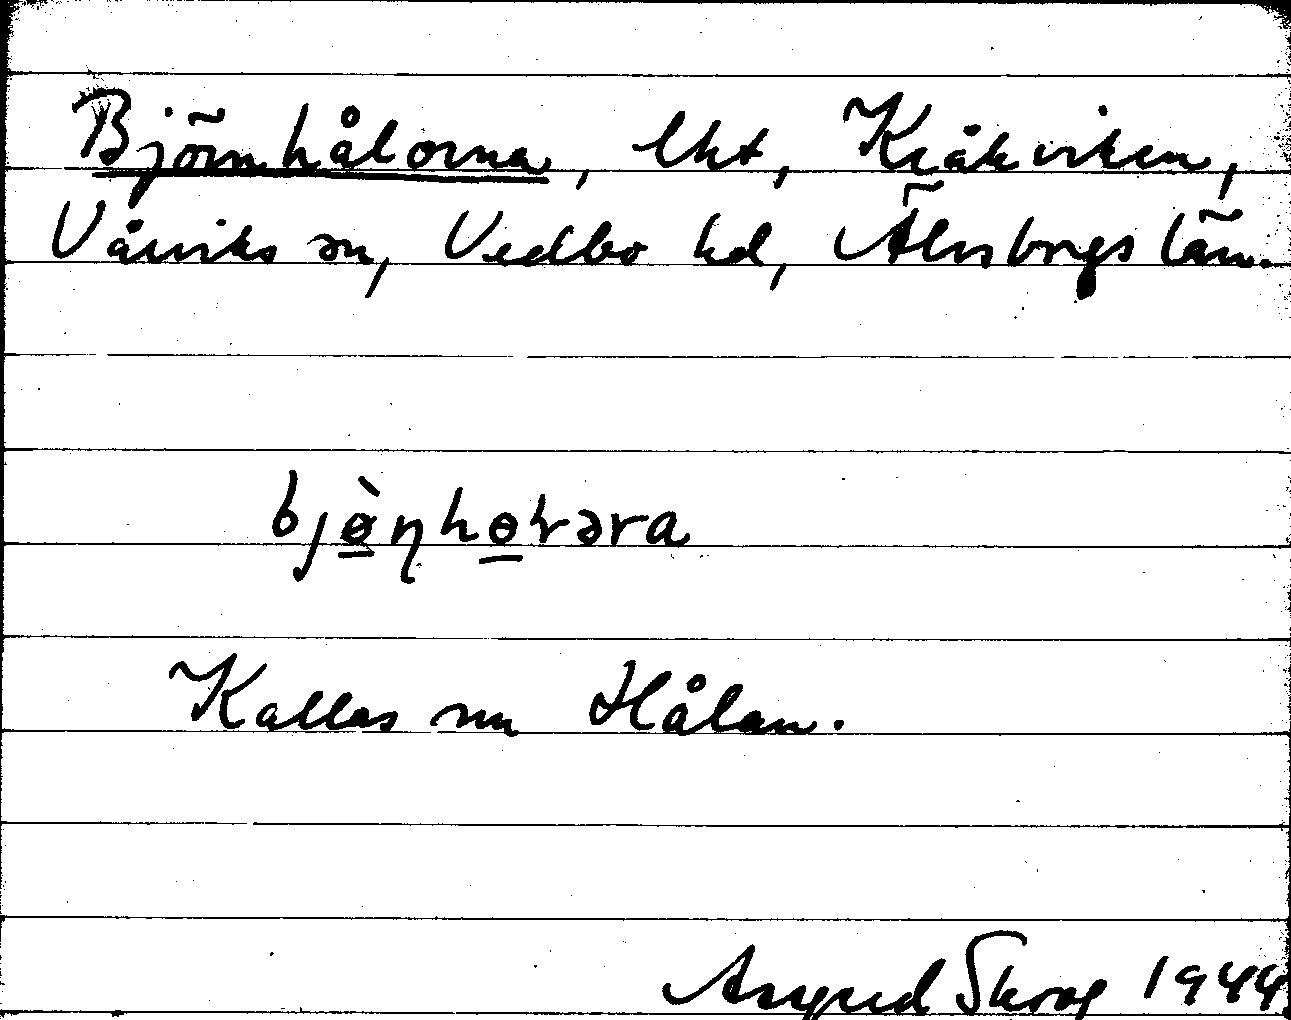 Björnhålorna, lht, Kråkviken,
Vårviks sn, Vedbo hd, Älvsborgs län.
bjɵ̀ɳhɵɽəra
Kallas nu Hålan.
Skrog 1944.